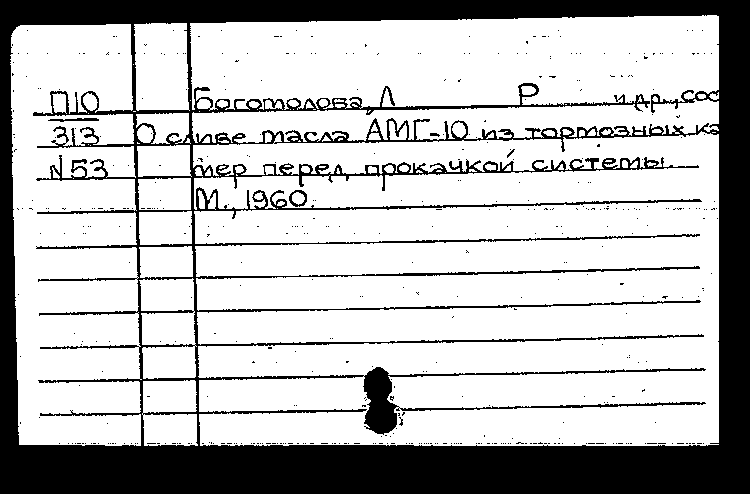 П10 Боготолова, Л Р и др., сос
313 О сливе масла АМГ-10 из тормозных ка
N53 мер перед прокачкой системы.
М., 1960.